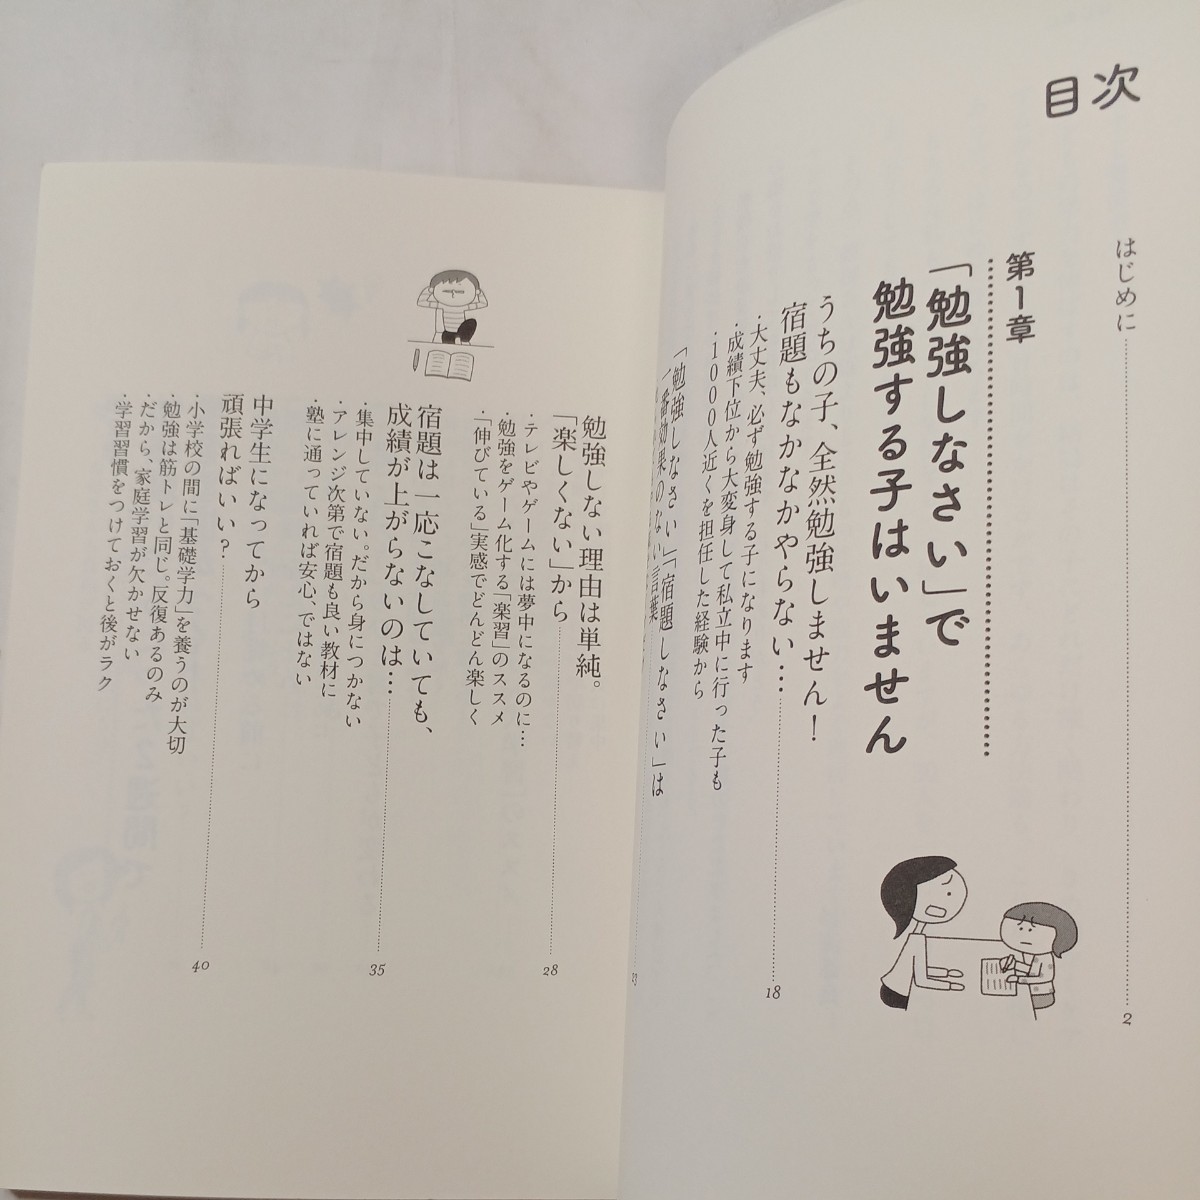 目次
はじめに 2
第1章
「勉強しなさい」で
勉強する子はいません
うちの子、全然勉強しません！
宿題もなかなかやらない… 18
・大丈夫、必ず勉強する子になります
・成績下位から大変身して私立中に行った子も
・1000人近くを担任した経験から
「勉強しなさい」「宿題しなさい」は
一番効果のない言葉
勉強しない理由は単純。
「楽しくない」から 28
・テレビやゲームには夢中になるのに…
・勉強をゲーム化する「楽習」のススメ
・「伸びている」実感でどんどん楽しく
宿題は一応こなしていても、
成績が上がらないのは… 35
・集中していない。だから身につかない
・アレンジ次第で宿題も良い教材に
・塾に通っていれば安心、ではない
中学生になってから
頑張ればいい？ 40
・小学校の間に「基礎学力」を養うのが大切
・勉強は筋トレと同じ。反復あるのみ
・だから、家庭学習が欠かせない
・学習習慣をつけておくと後がラク